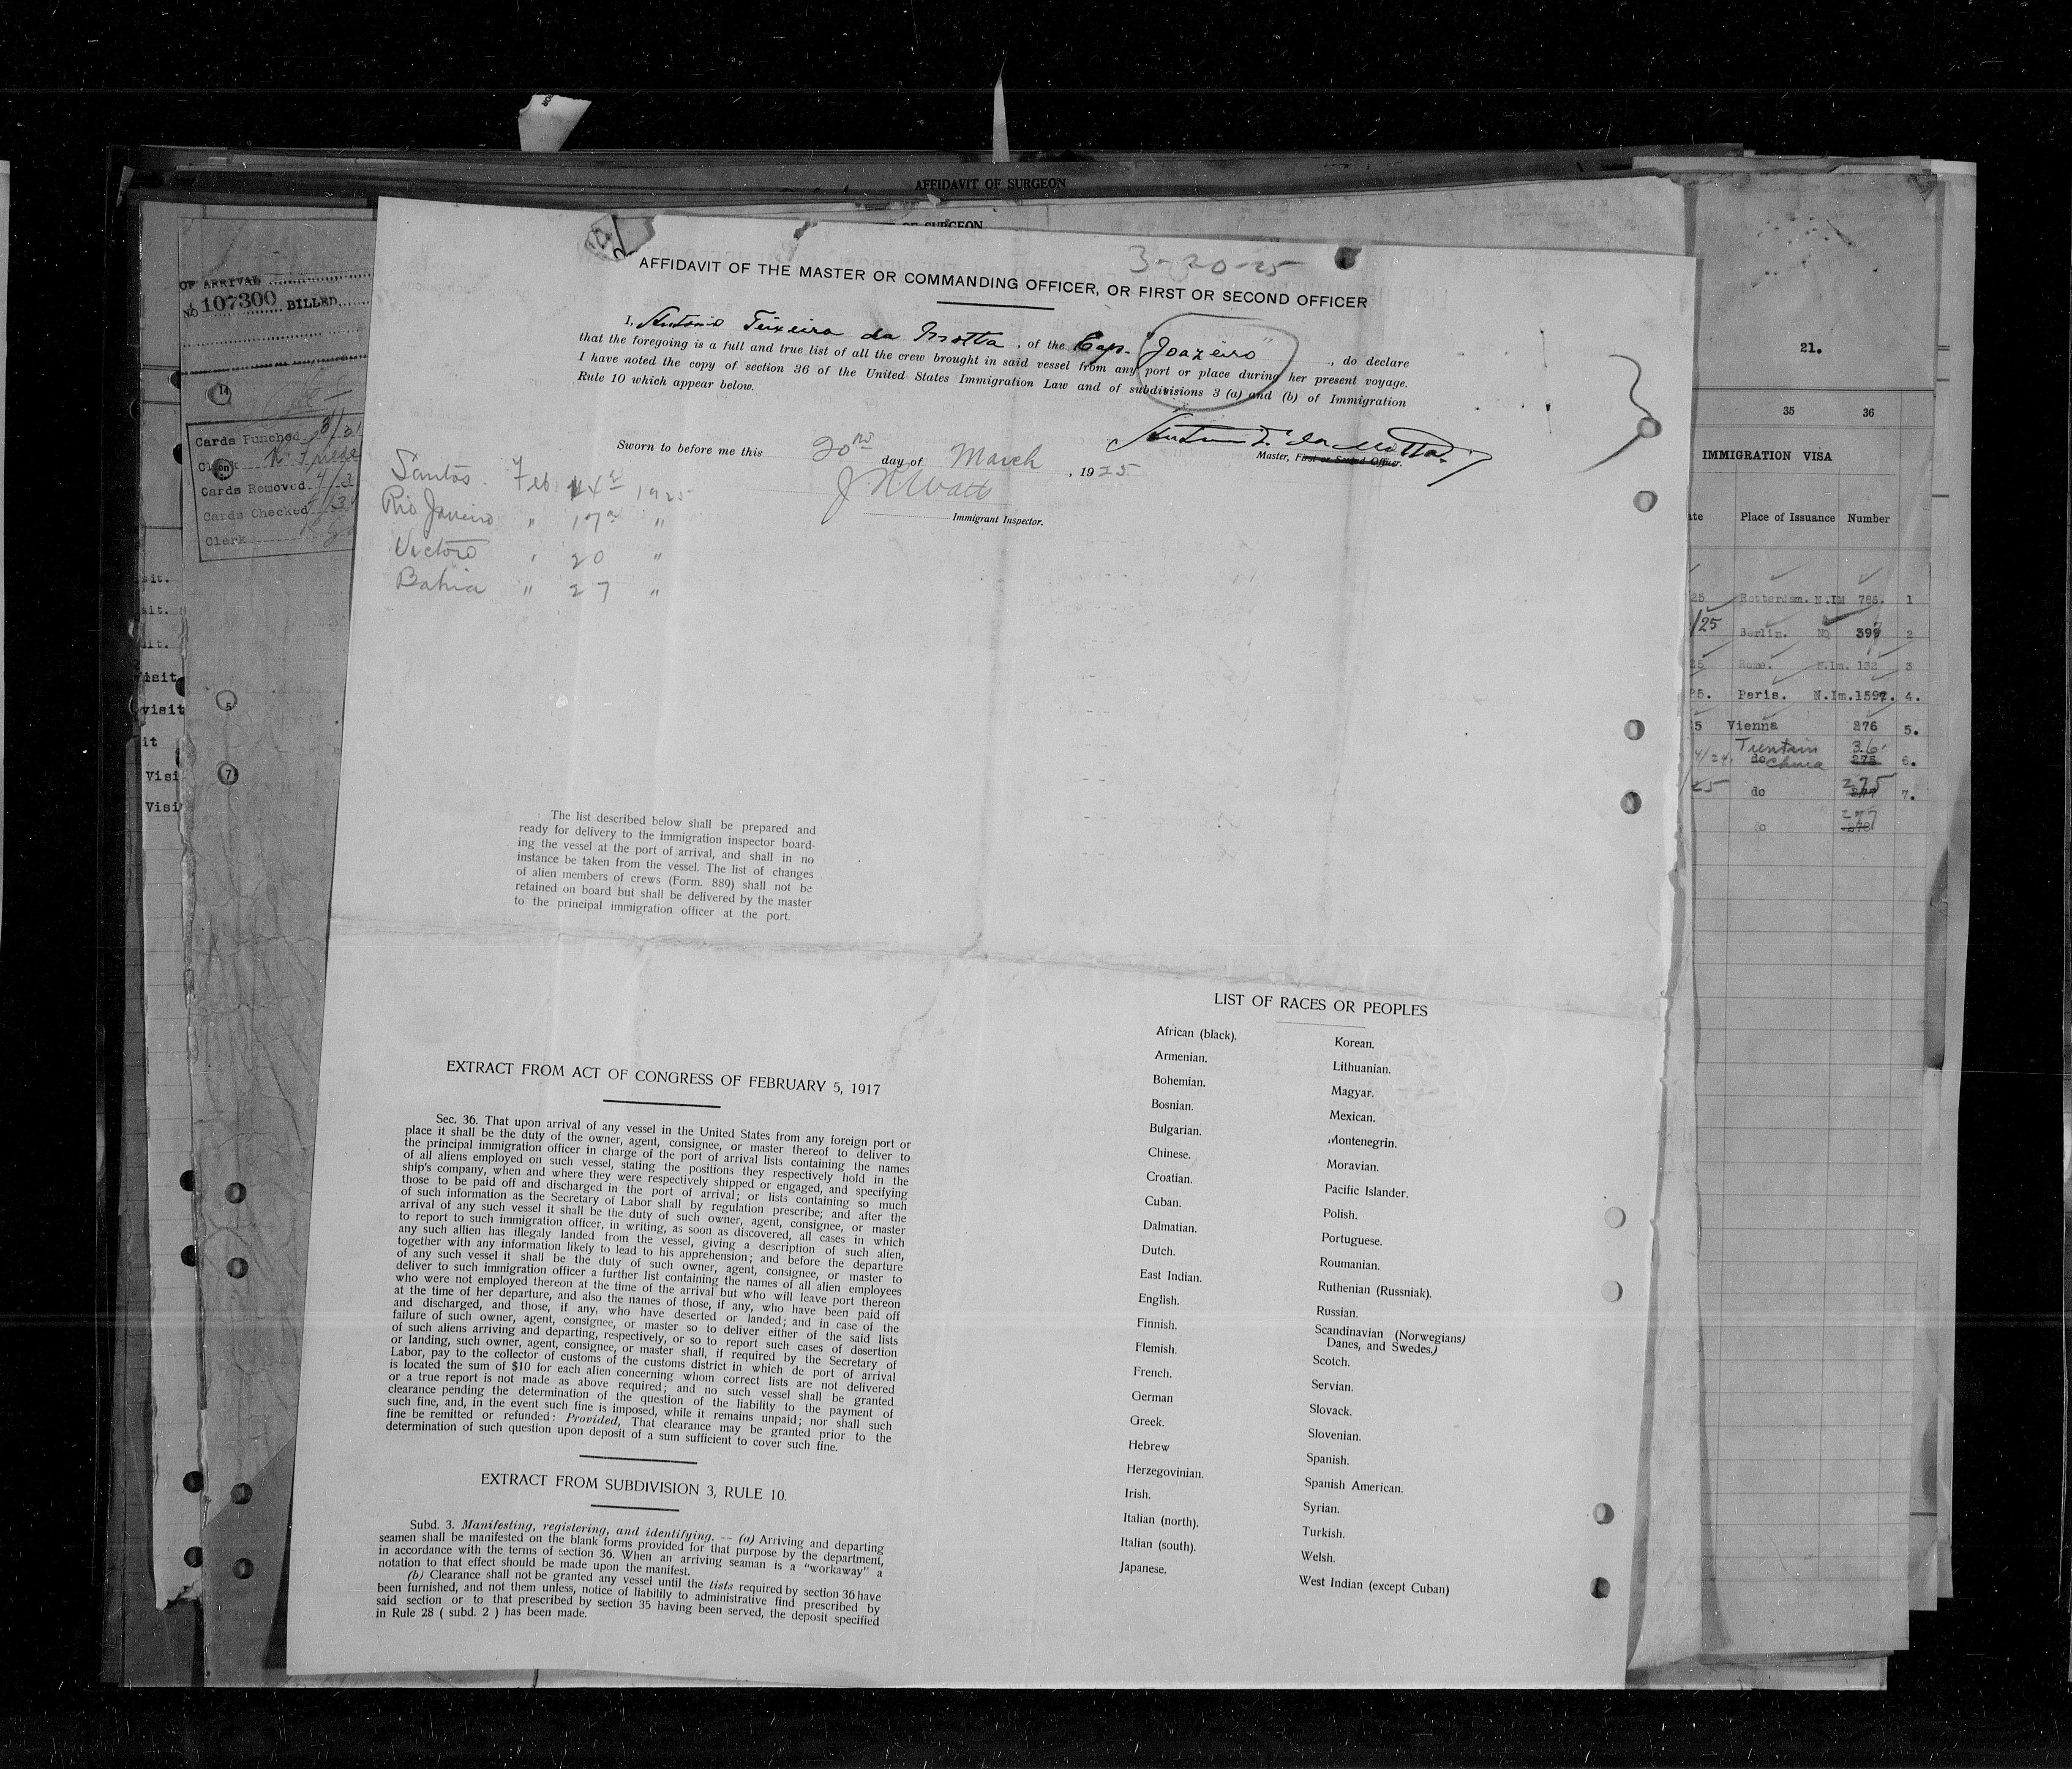 AFFIDAVIT OF SURGEON
OF SURGEON
OF ARRIVAL
No 107300 BILLED
14
Cards Punched 3/31
Clerk
on
Cards Removed 4/3
Cards Checked
Clerk
sit.
sit.
sit.
isit
visit
it
Visi
Visi
5
7
3-20-25
AFFIDAVIT OF THE MASTER OR COMMANDING OFFICER, OR FIRST OR SECOND OFFICER
I, Antonio Teixeira da Motta, of the Cap. "Joazeiro", do declare
that the foregoing is a full and true list of all the crew brought in said vessel from any port or place during her present voyage.
I have noted the copy of section 36 of the United States Immigration Law and of subdivisions 3 (a) and (b) of Immigration
Rule 10 which appear below.
Antonio T. da Motta
Master, First or Second Officer.
Sworn to before me this 20th day of March, 1925
J N Watts
Immigrant Inspector.
Santos. Feb 14th 1925
Rio Janeiro " 17th "
Victoro " 20 "
Bahia " 27 "
The list described below shall be prepared and
ready for delivery to the immigration inspector board-
ing the vessel at the port of arrival, and shall in no
instance be taken from the vessel. The list of changes
of alien members of crews (Form. 889) shall not be
retained on board but shall be delivered by the master
to the principal immigration officer at the port.
EXTRACT FROM ACT OF CONGRESS OF FEBRUARY 5, 1917
Sec. 36. That upon arrival of any vessel in the United States from any foreign port or
place it shall be the duty of the owner, agent, consignee, or master thereof to deliver to
the principal immigration officer in charge of the port of arrival lists containing the names
of all aliens employed on such vessel, stating the positions they respectively hold in the
ship's company, when and where they were respectively shipped or engaged, and specifying
those to be paid off and discharged in the port of arrival; or lists containing so much
of such information as the Secretary of Labor shall by regulation prescribe; and after the
arrival of any such vessel it shall be the duty of such owner, agent, consignee, or master
to report to such immigration officer, in writing, as soon as discovered, all cases in which
any such allien has illegaly landed from the vessel, giving a description of such alien,
together with any information likely to lead to his apprehension; and before the departure
of any such vessel it shall be the duty of such owner, agent, consignee, or master to
deliver to such immigration officer a further list containing the names of all alien employees
who were not employed thereon at the time of the arrival but who will leave port thereon
at the time of her departure, and also the names of those, if any, who have been paid off
and discharged, and those, if any, who have deserted or landed; and in case of the
failure of such owner, agent, consignee, or master so to deliver either of the said lists
of such aliens arriving and departing, respectively, or so to report such cases of desertion
or landing, such owner, agent, consignee, or master shall, if required by the Secretary of
Labor, pay to the collector of customs of the customs district in which de port of arrival
is located the sum of $10 for each alien concerning whom correct lists are not delivered
or a true report is not made as above required; and no such vessel shall be granted
clearance pending the determination of the question of the liability to the payment of
such fine, and, in the event such fine is imposed, while it remains unpaid; nor shall such
fine be remitted or refunded: Provided, That clearance may be granted prior to the
determination of such question upon deposit of a sum sufficient to cover such fine.
EXTRACT FROM SUBDIVISION 3, RULE 10.
Subd. 3. Manifesting, registering, and identifying. -- (a) Arriving and departing
seamen shall be manifested on the blank forms provided for that purpose by the department,
in accordance with the terms of section 36. When an arriving seaman is a "workaway" a
notation to that effect should be made upon the manifest.
(b) Clearance shall not be granted any vessel until the lists required by section 36 have
been furnished, and not them unless, notice of liabilily to administrative find prescribed by
said section or to that prescribed by section 35 having been served, the deposit specified
in Rule 28 ( subd. 2 ) has been made.
LIST OF RACES OR PEOPLES
African (black).
Armenian.
Bohemian.
Bosnian.
Bulgarian.
Chinese.
Croatian.
Cuban.
Dalmatian.
Dutch.
East Indian.
English.
Finnish.
Flemish.
French.
German
Greek.
Hebrew
Herzegovinian.
Irish.
Italian (north).
Italian (south).
Japanese.
Korean.
Lithuanian.
Magyar.
Mexican.
Montenegrin.
Moravian.
Pacific Islander.
Polish.
Portuguese.
Roumanian.
Ruthenian (Russniak).
Russian.
Scandinavian (Norwegians)
Danes, and Swedes.)
Scotch.
Servian.
Slovack.
Slovenian.
Spanish.
Spanish American.
Syrian.
Turkish.
Welsh.
West Indian (except Cuban)
21.
35 36
IMMIGRATION VISA
ate Place of Issuance Number
25 Rotterdam. N.IM 786. 1
/25 Berlin. NQ 399 2
25 Rome. N.Im. 132 3
25. Paris. N.Im.1592. 4.
5 Vienna 276 5.
Tientsin 36
4/24. do China 275 6.
25 do 275 277 7.
277
o 278